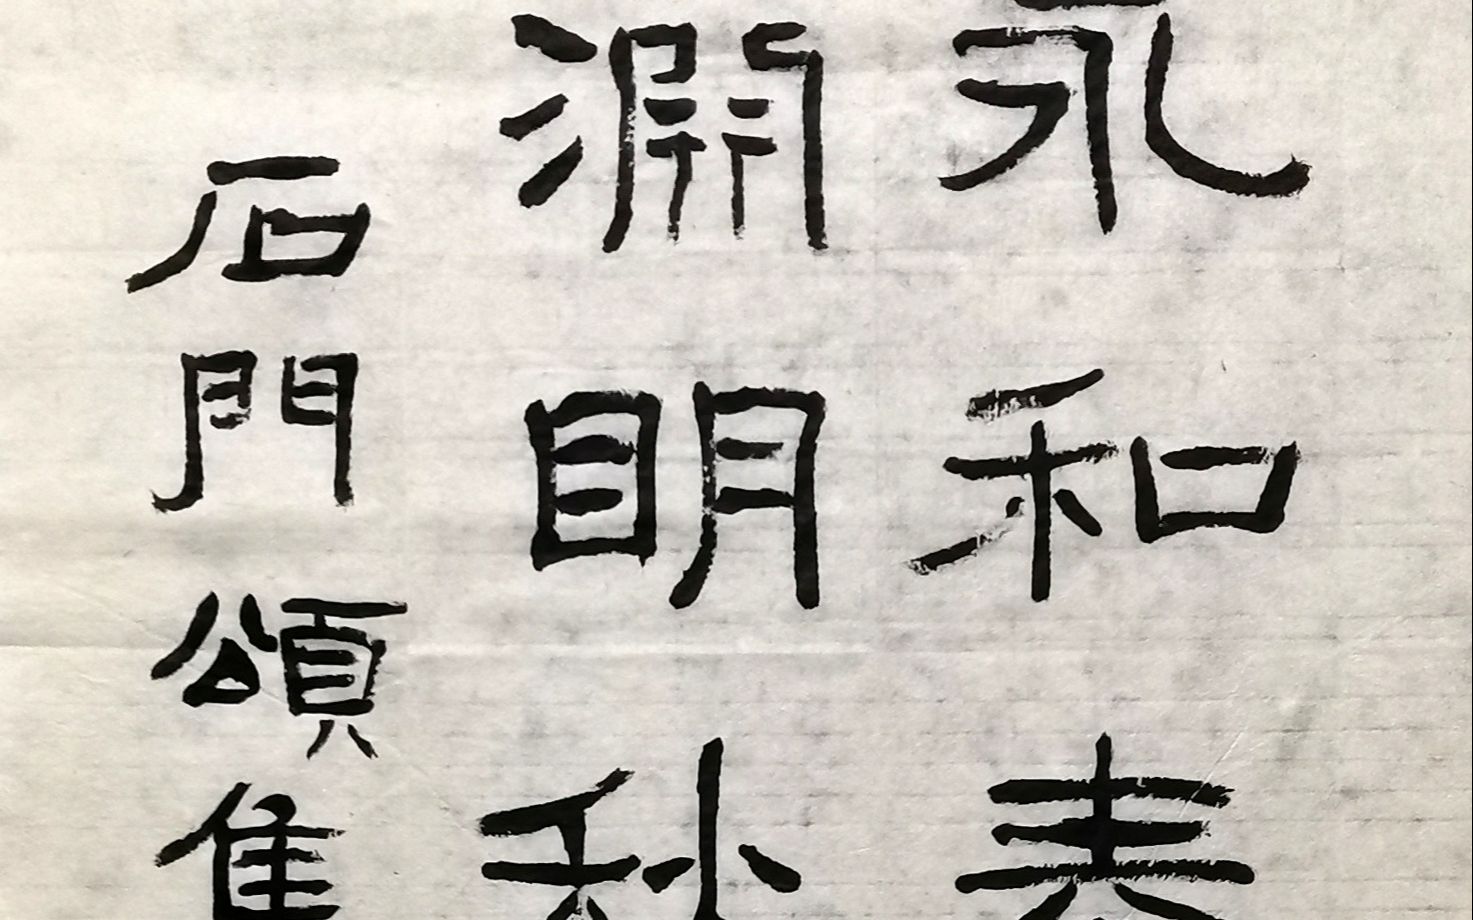 永和春
淵明秋
石門頌集